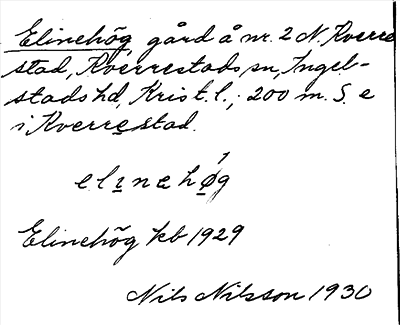 Elinehög, gård å nr. 2 N. Kverre
stad, Kverrestads sn, Ingel-
stads hd, Krist. l.; 200 m. S. e
i Kverrestad.
elinehøg
Elinehög kb 1929
Nils Nilsson 1930